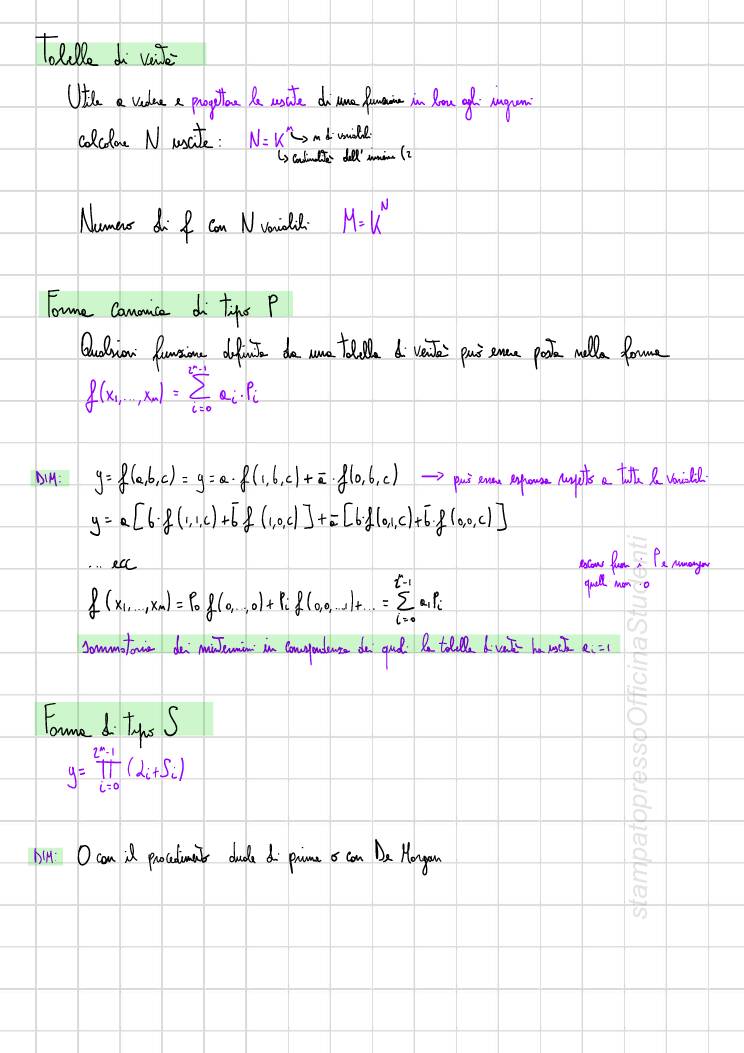 Tabella di verità
Utile a vedere e progettare le uscite di una funzione in base agli ingressi
calcolare N uscite: N=K^n → n di variabili
↳ cardinalità dell'insieme (2
Numero di f con N variabili M=K^N
Forma canonica di tipo P
Qualsiasi funzione definita da una tabella di verità può essere posta nella forma
f(x₁,...,xₙ) = ∑_{i=0}^{2ⁿ-1} aᵢ·Pᵢ
DIM: y=f(a,b,c) = y=a·f(1,b,c)+a̅·f(0,b,c) → può essere espansa rispetto a tutte le variabili
y=a[b·f(1,1,c)+b̅ f(1,0,c)]+a̅[b·f(0,1,c)+b̅·f(0,0,c)]
... ecc
escono fuori i P e rimangon
quelli non 0
f(x₁,...,xₙ)=P₀ f(0,...,0)+Pᵢ f(0,0,...,1)+... = ∑_{i=0}^{2ⁿ-1} aᵢPᵢ
sommatoria dei mintermini in corrispondenza dei quali la tabella di verità ha uscita aᵢ=1
Forma di tipo S
y= ∏_{i=0}^{2ⁿ-1} (αᵢ+Sᵢ)
DIM: O con il procedimento duale di prima o con De Morgan
stampatopressoOfficinaStudenti